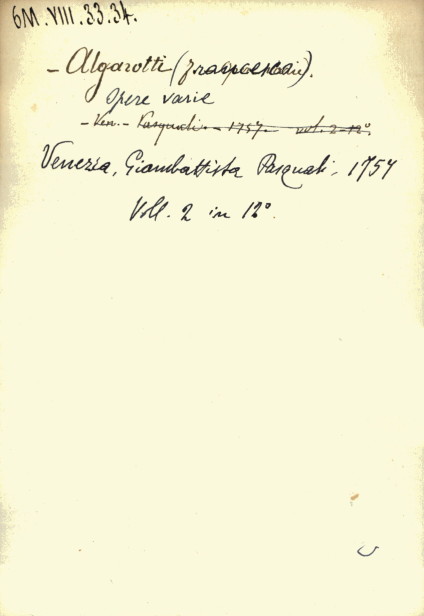 6M.VIII.33.34.
- Algarotti (Francesco).
Opere varie
- Ven. - Pasquali. - 1757. - vol. 2 - 12°.
Venezia, Giambattista Pasquali, 1757
Voll. 2 in 12°.